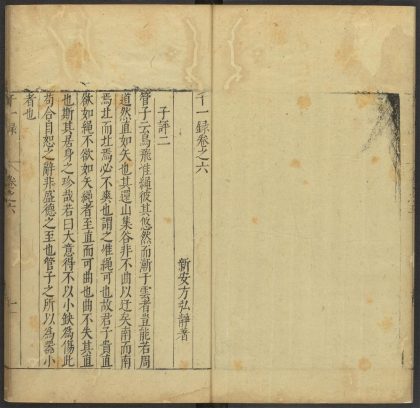 千一録卷之六
新安方弘靜著
子評二
管子云鳥飛准繩彼其悠然而漸于雲者豈能若周
道然直如矢也其還山集谷非不曲以迂矣南而南
焉北而北焉必不爽也謂之惟繩可也故君子貴直
欲如繩不欲如矢繩者至直而可曲也曲不失其直
也斯其居身之珍哉若曰大意得不以小缺為傷此
苟合自恕之辭非盛德之至也管子之所以為器小
者也
千一録
卷之六
一